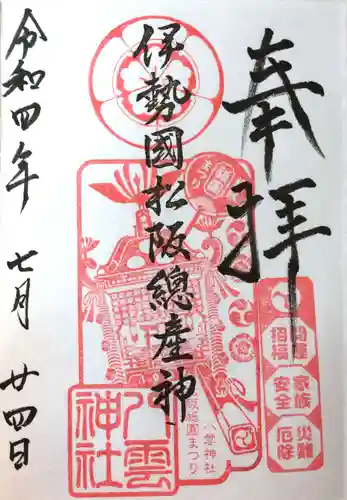 奉拝
伊勢國松阪總産神
令和四年 七月 廿四日
八雲神社
祇園まつり
八雲神社
松阪祇園まつり
開運招福
家族安全
災難厄除